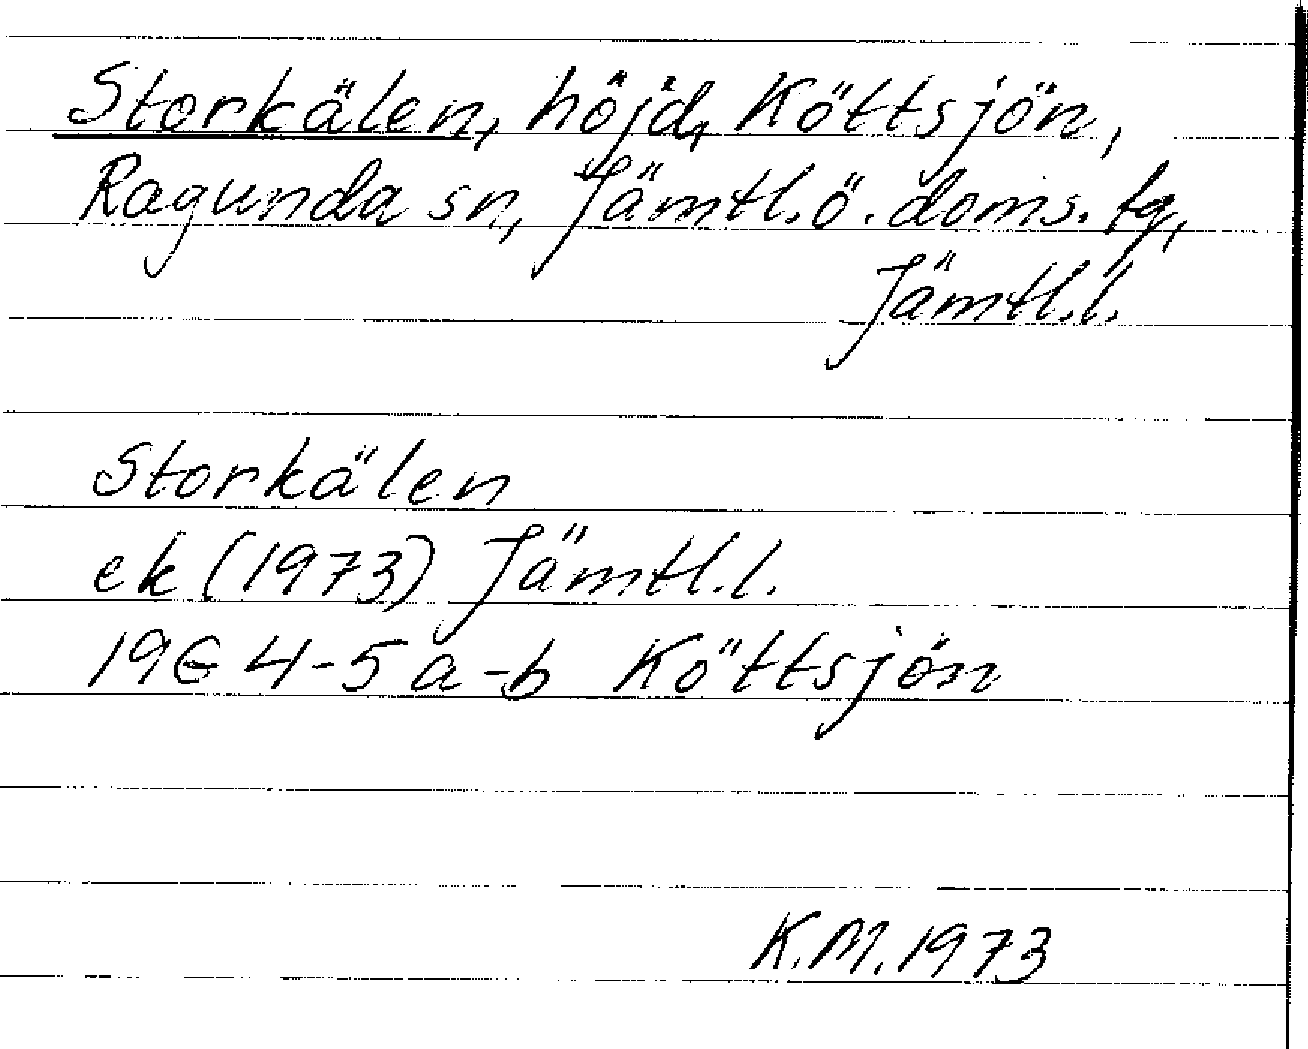 Storkälen, höjd, Köttsjön,
Ragunda sn, Jämtl. ö. doms. tg,
Jämtl. l.
Storkälen
ek (1973) Jämtl. l.
19E 4-5 a-b Köttsjön
K.M. 1973